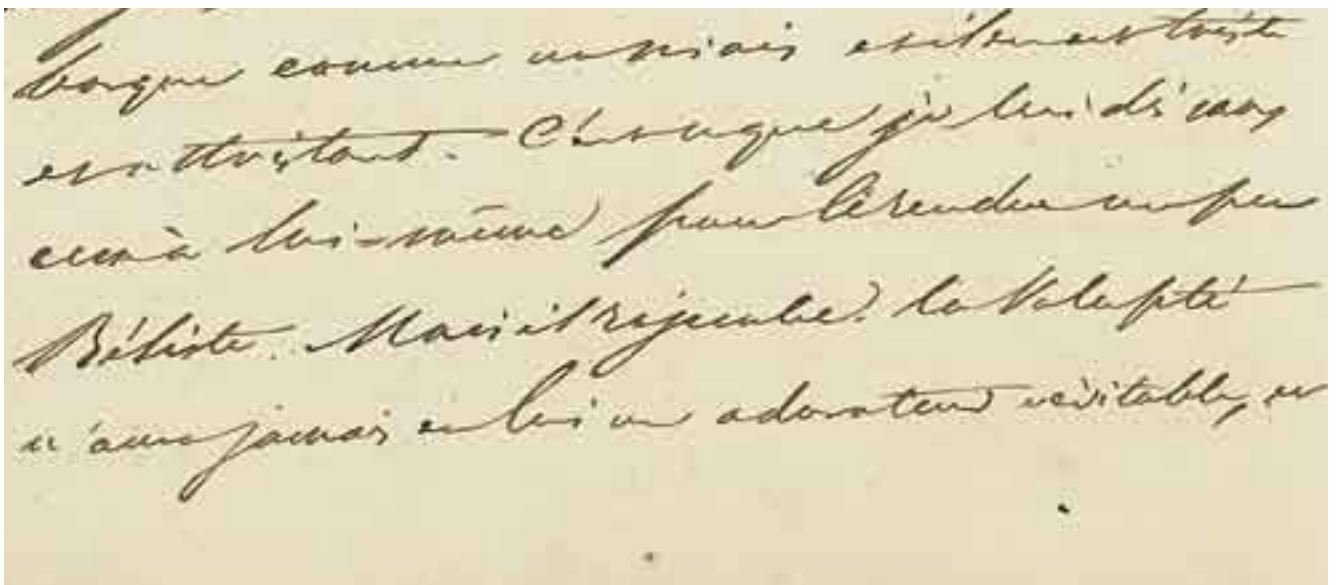 borgne comme un niais et il en est triste
et attristant. C'est ce que je lui dis sans
cesse à lui-même pour le rendre un peu
Mais il regimbe. la Volupté
n'aura jamais en lui un adorateur véritable, et